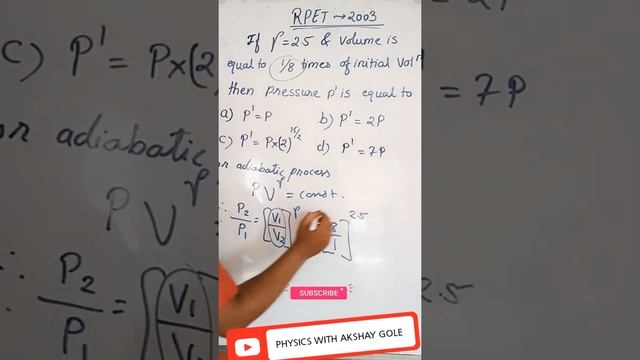 RPET → 2003
If γ = 2.5 & volume is
equal to 1/8 times of initial Volm
then pressure p' is equal to
a) P' = P
b) P' = 2P
c) P' = P×(2)^15/2
d) P' = 7P
or adiabatic process
PV^γ = const.
∴ P2/P1 = [V1/V2]^γ = [8/1]^2.5
C) P' = P×(2)
= 7P
or adiabatic
PV
∴ P2/P1 = [V1/V2
2.5
SUBSCRIBE
PHYSICS WITH AKSHAY GOLE